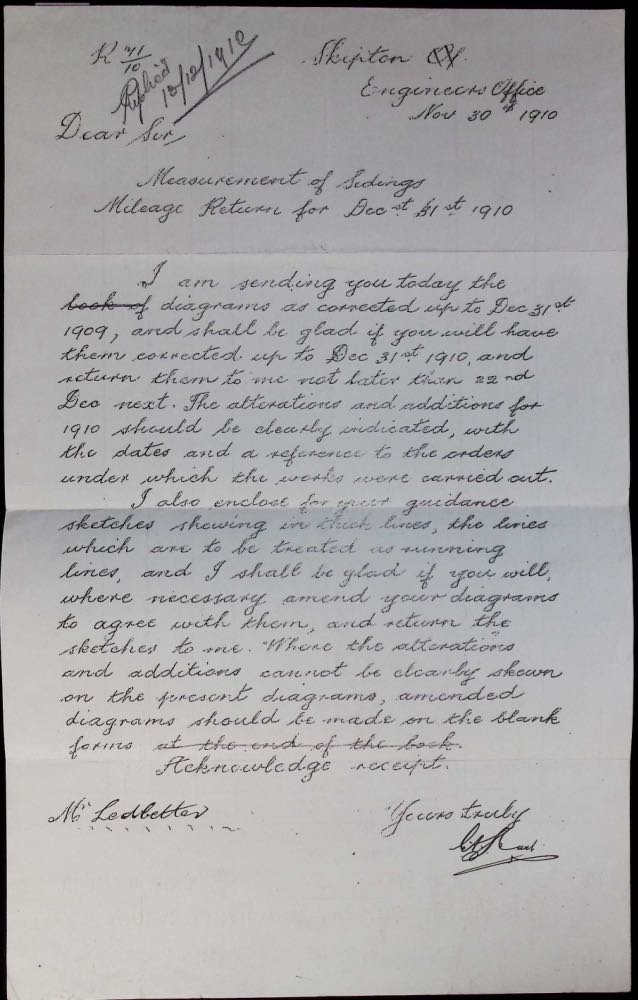 R 71/10
Replied 13/12/1910
Skipton
Engineers Office
Nov 30th 1910
Dear Sir,
Measurement of Sidings
Mileage Return for Decst 31st 1910
I am sending you today the
book of diagrams as corrected up to Dec 31st
1909, and shall be glad if you will have
them corrected up to Dec 31st 1910, and
return them to me not later than 22nd
Dec next. The alterations and additions for
1910 should be clearly indicated, with
the dates and a reference to the orders
under which the works were carried out.
I also enclose for your guidance
sketches shewing in thick lines, the lines
which are to be treated as running
lines, and I shall be glad if you will,
where necessary amend your diagrams
to agree with them, and return the
sketches to me. Where the alterations
and additions cannot be clearly shewn
on the present diagrams, amended
diagrams should be made on the blank
forms at the end of the book.
Acknowledge receipt.
Mr Ledbetter
Yours truly